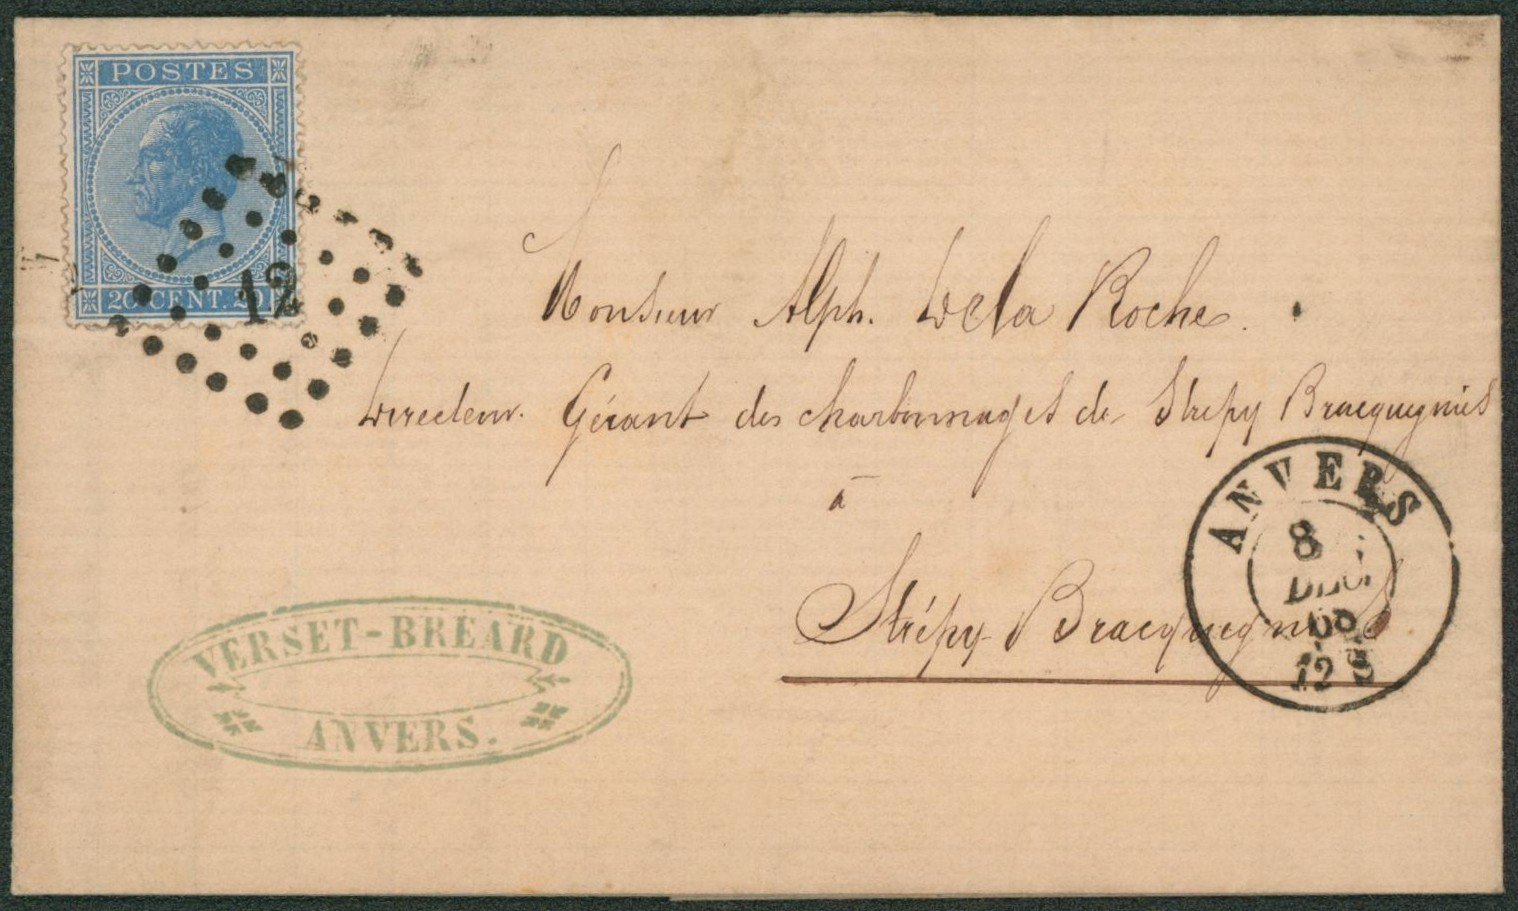 POSTES
20 CENT. 20
12
Monsieur Alph. Dela Roche.
Directeur. Gérant des charbonnages de Strépy Bracquegnies
à
Strépy-Bracquegnies
ANVERS
8
DEC.
68
12 S
VERSET-BREARD
ANVERS.